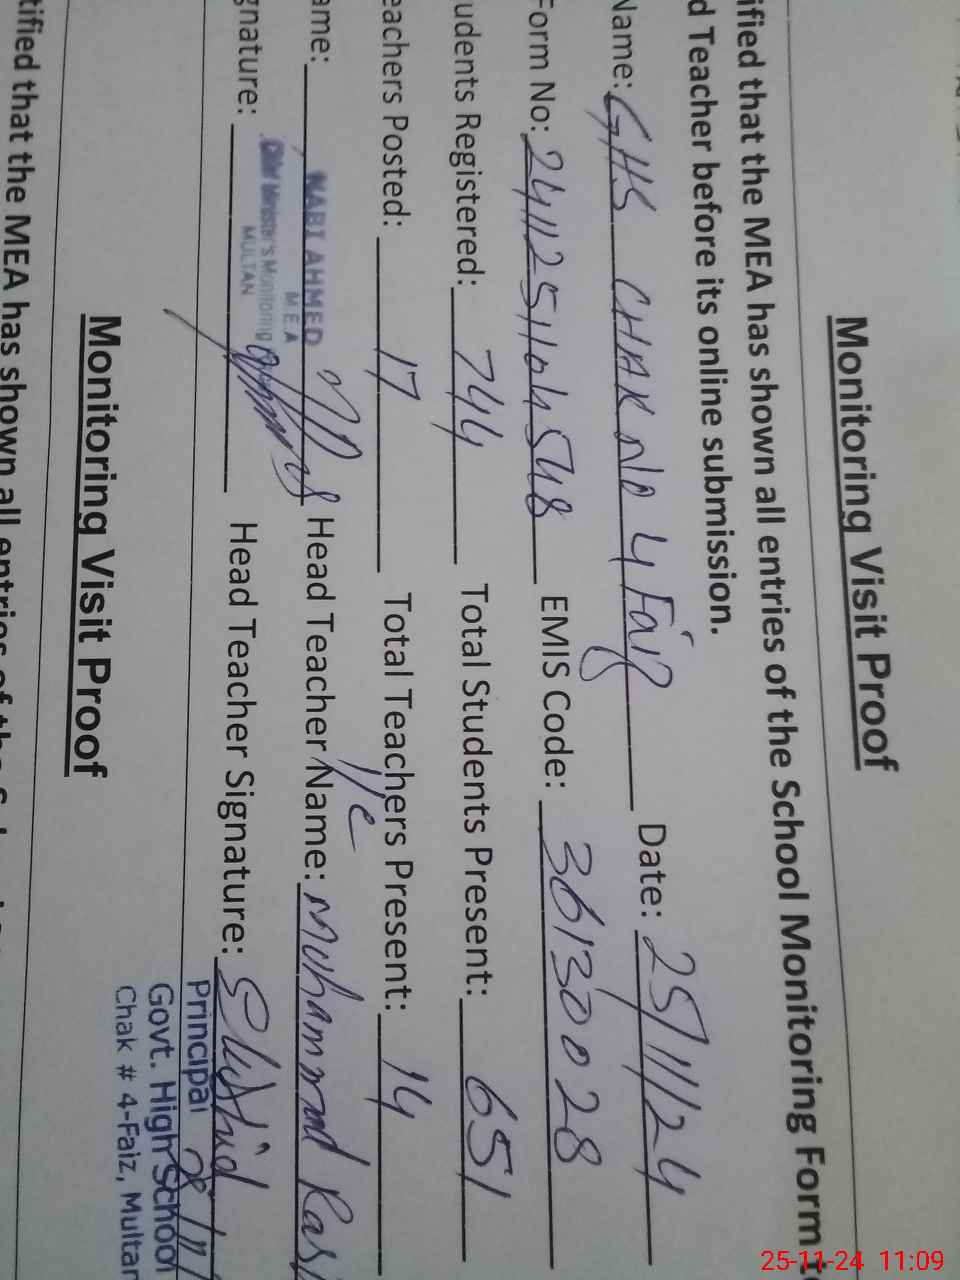 Monitoring Visit Proof
ified that the MEA has shown all entries of the School Monitoring Form to
d Teacher before its online submission.
Name: GHS CHAK No 4 Faiz Date: 25/11/24
Form No: EMIS Code: 36130028
udents Registered: 744 Total Students Present: 651
eachers Posted: 17 Total Teachers Present: 14
ame: NABI AHMED Head Teacher Name: Muhammad Ras
MEA
gnature: Chief Minister's Monitoring Head Teacher Signature:
MULTAN
Principal
Govt. High School
Chak # 4-Faiz, Multan
Monitoring Visit Proof
tified that the MEA has shown all entries of the S
25-11-24 11:09